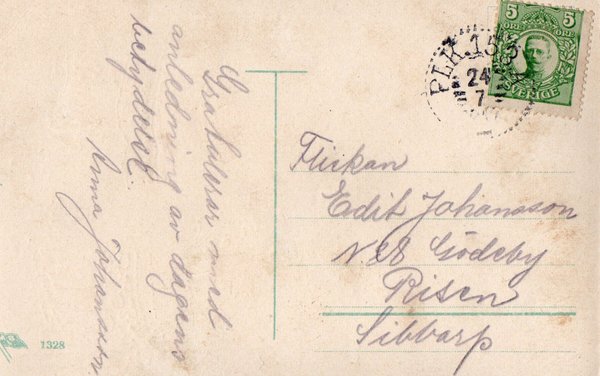 Gratulerar med
anledning av dagens
betydelse.
Anna Johansson.
PLK.153
24
7
5 5
ÖRE ÖRE
SVERIGE
Flickan
Edit Johansson
N28 Gödeby
Risen
Sibbarp
1328